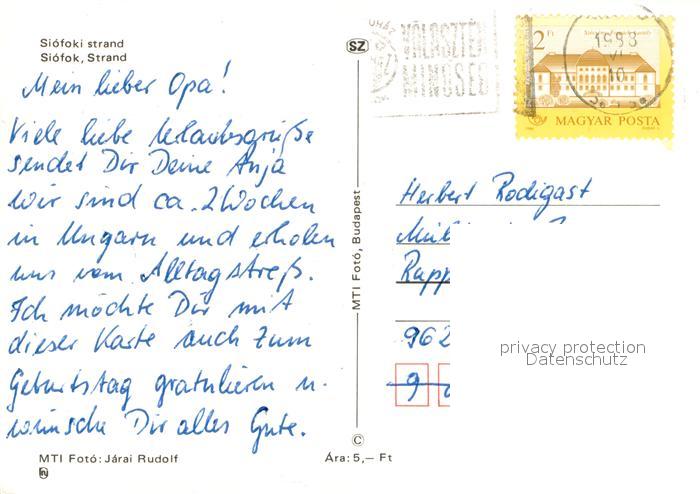 Siófoki strand
Siófok, Strand
Mein lieber Opa!
Viele liebe Urlaubsgrüße
sendet Dir Deine Anja
wir sind ca. 2 Wochen
in Ungarn und erholen
uns vom Alltagstreß.
Ich möchte Dir mit
dieser Karte auch zum
Geburtstag gratulieren u.
wünsche Dir alles Gute.
MTI Fotó: Járai Rudolf
Ára: 5,– Ft
SZ
MTI Fotó, Budapest
©
VÁLASZTÉK
MINŐSÉG
2 Ft
MAGYAR POSTA
1988
VI
10
Herbert Rodigast
Rupp
962
9
privacy protection
Datenschutz